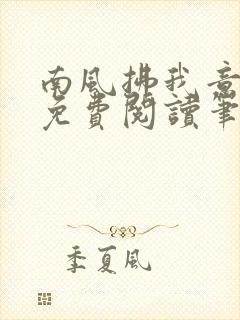 南風拂我意
免費閱讀筆
季夏風